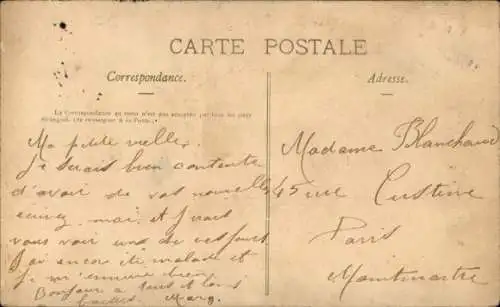 CARTE POSTALE
Correspondance.
Adresse.
La Correspondance au verso n'est pas acceptée par tous les pays
étrangers. (Se renseigner à la Poste.)
Ma ptite vielle.
Je serais bien contente
d'avoir de vos nouvelles
écrivez moi et j'irais
vous voir un de ces jours
J'ai encor été malade et
je m'ennuie bien
Bonjour a tous et bons
Marg.
Madame Blanchard
45 rue Custine
Paris
Montmartre